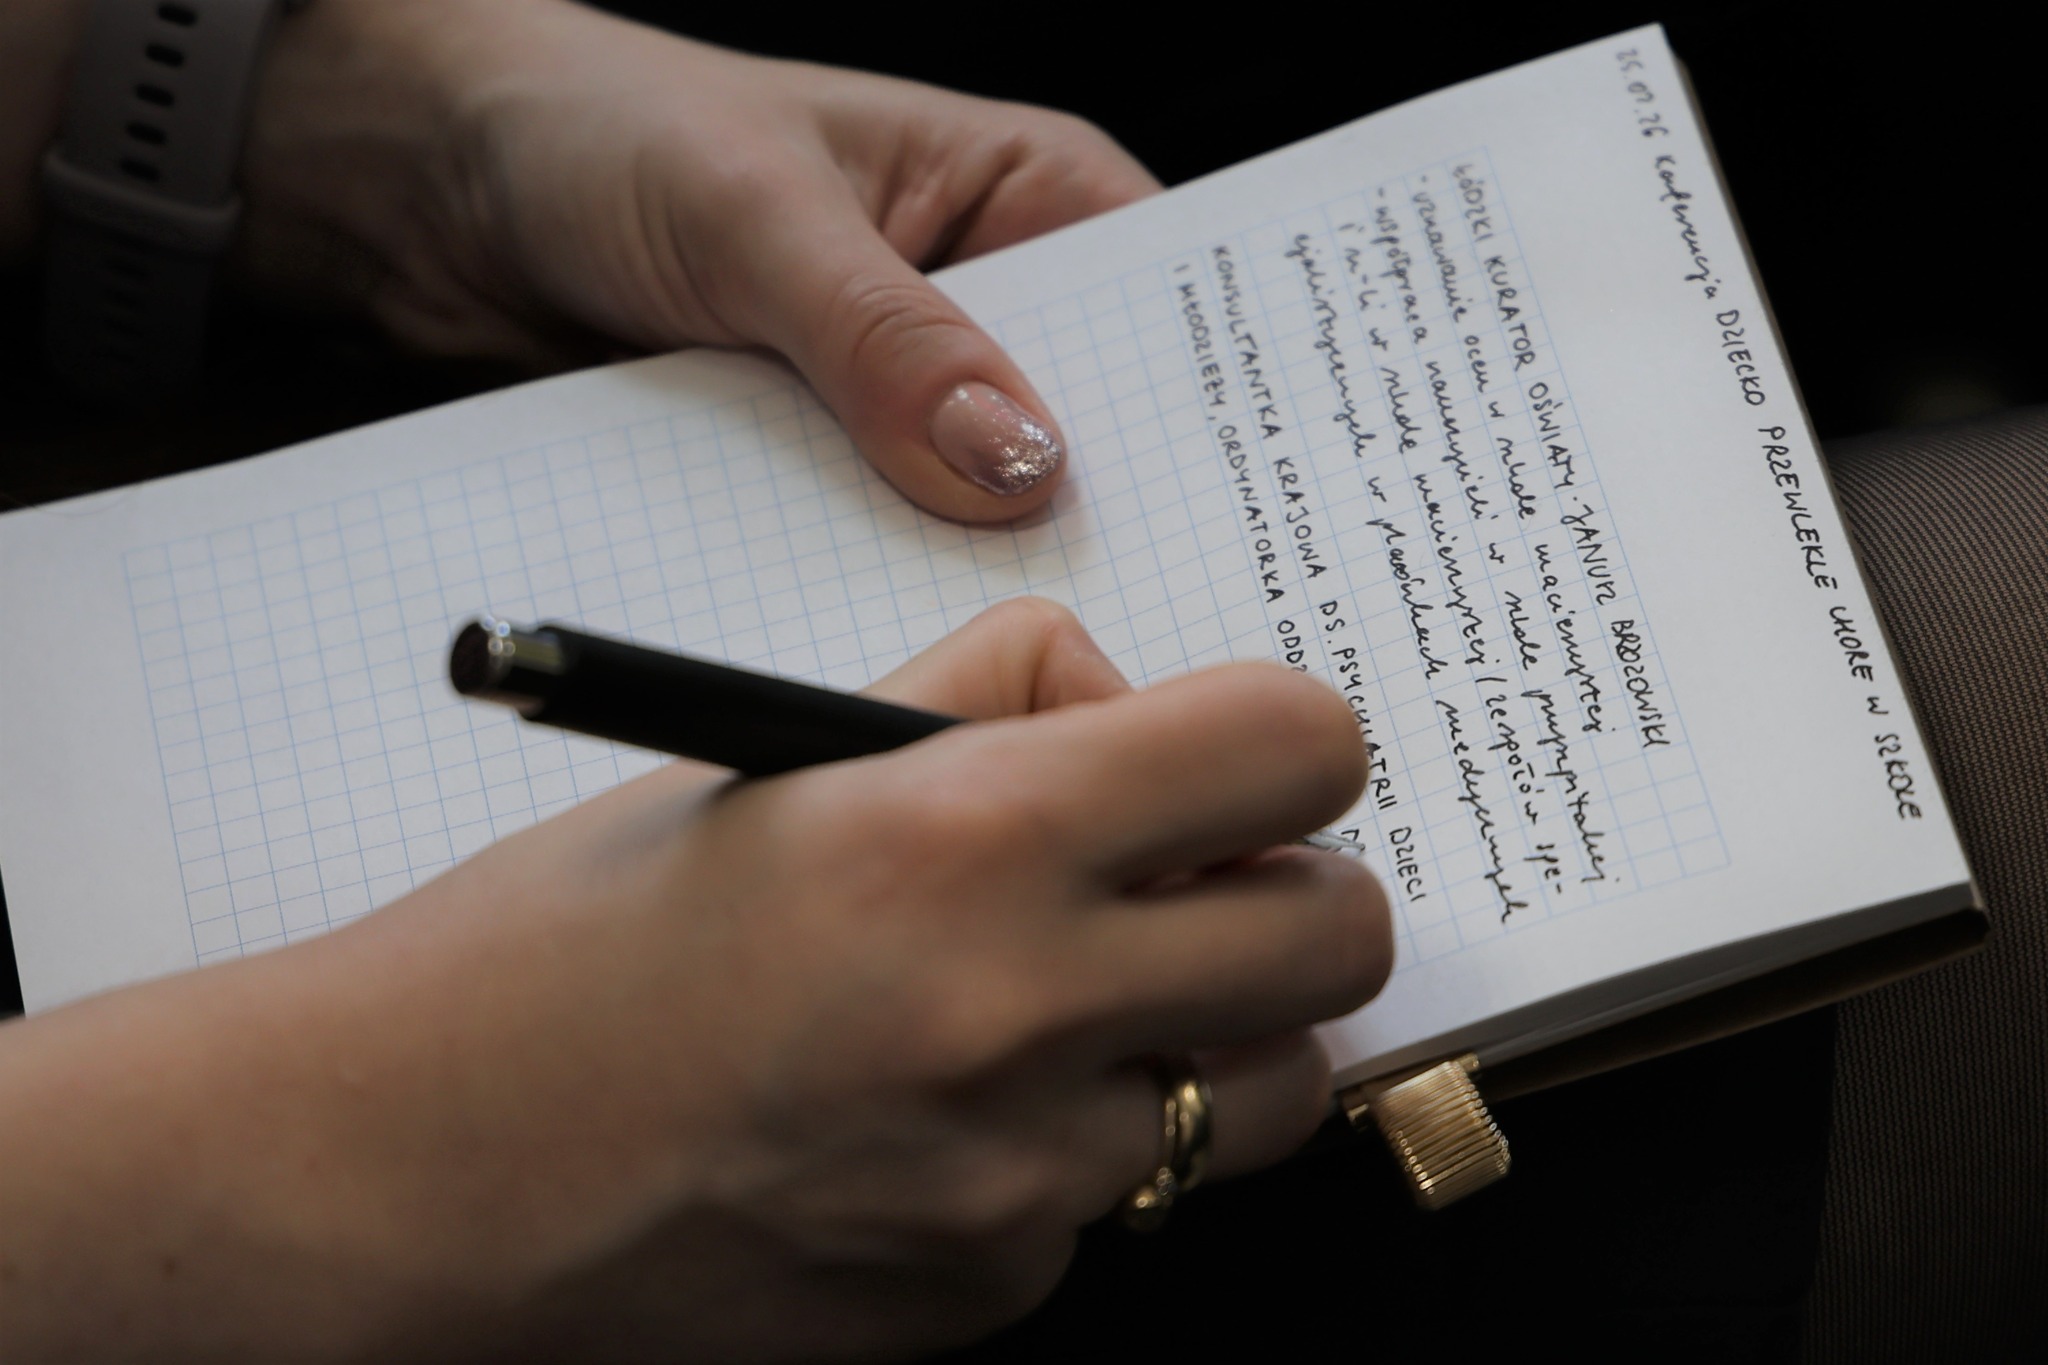 25.02.26 Konferencja DZIECKO PRZEWLEKLE CHORE W SZKOLE
ŁÓDZKI KURATOR OŚWIATY. JANUSZ BRZOZOWSKI
- uznawanie ocen w szkole macierzystej
- współpraca nauczycieli w szkole przyszpitalnej
i n-li w szkole macierzystej / zespołów spe-
cjalistycznych w placówkach medycznych
KONSULTANTKA KRAJOWA DS. PSYCHIATRII DZIECI
I MŁODZIEŻY, ORDYNATORKA